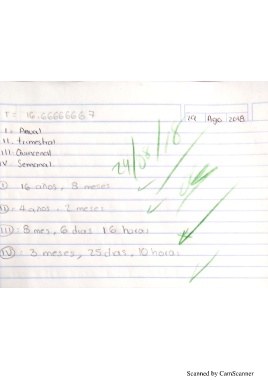 T = 16.66666667
29 Ago 2018
I. Anual
II. trimestral
III. Quincenal
IV. Semanal
24/08/18
I) 16 años, 8 meses
II): 4 años, 2 meses
III): 8 mes, 6 dias 16 horas
IV): 3 meses, 25 dias, 10 horas
Scanned by CamScanner